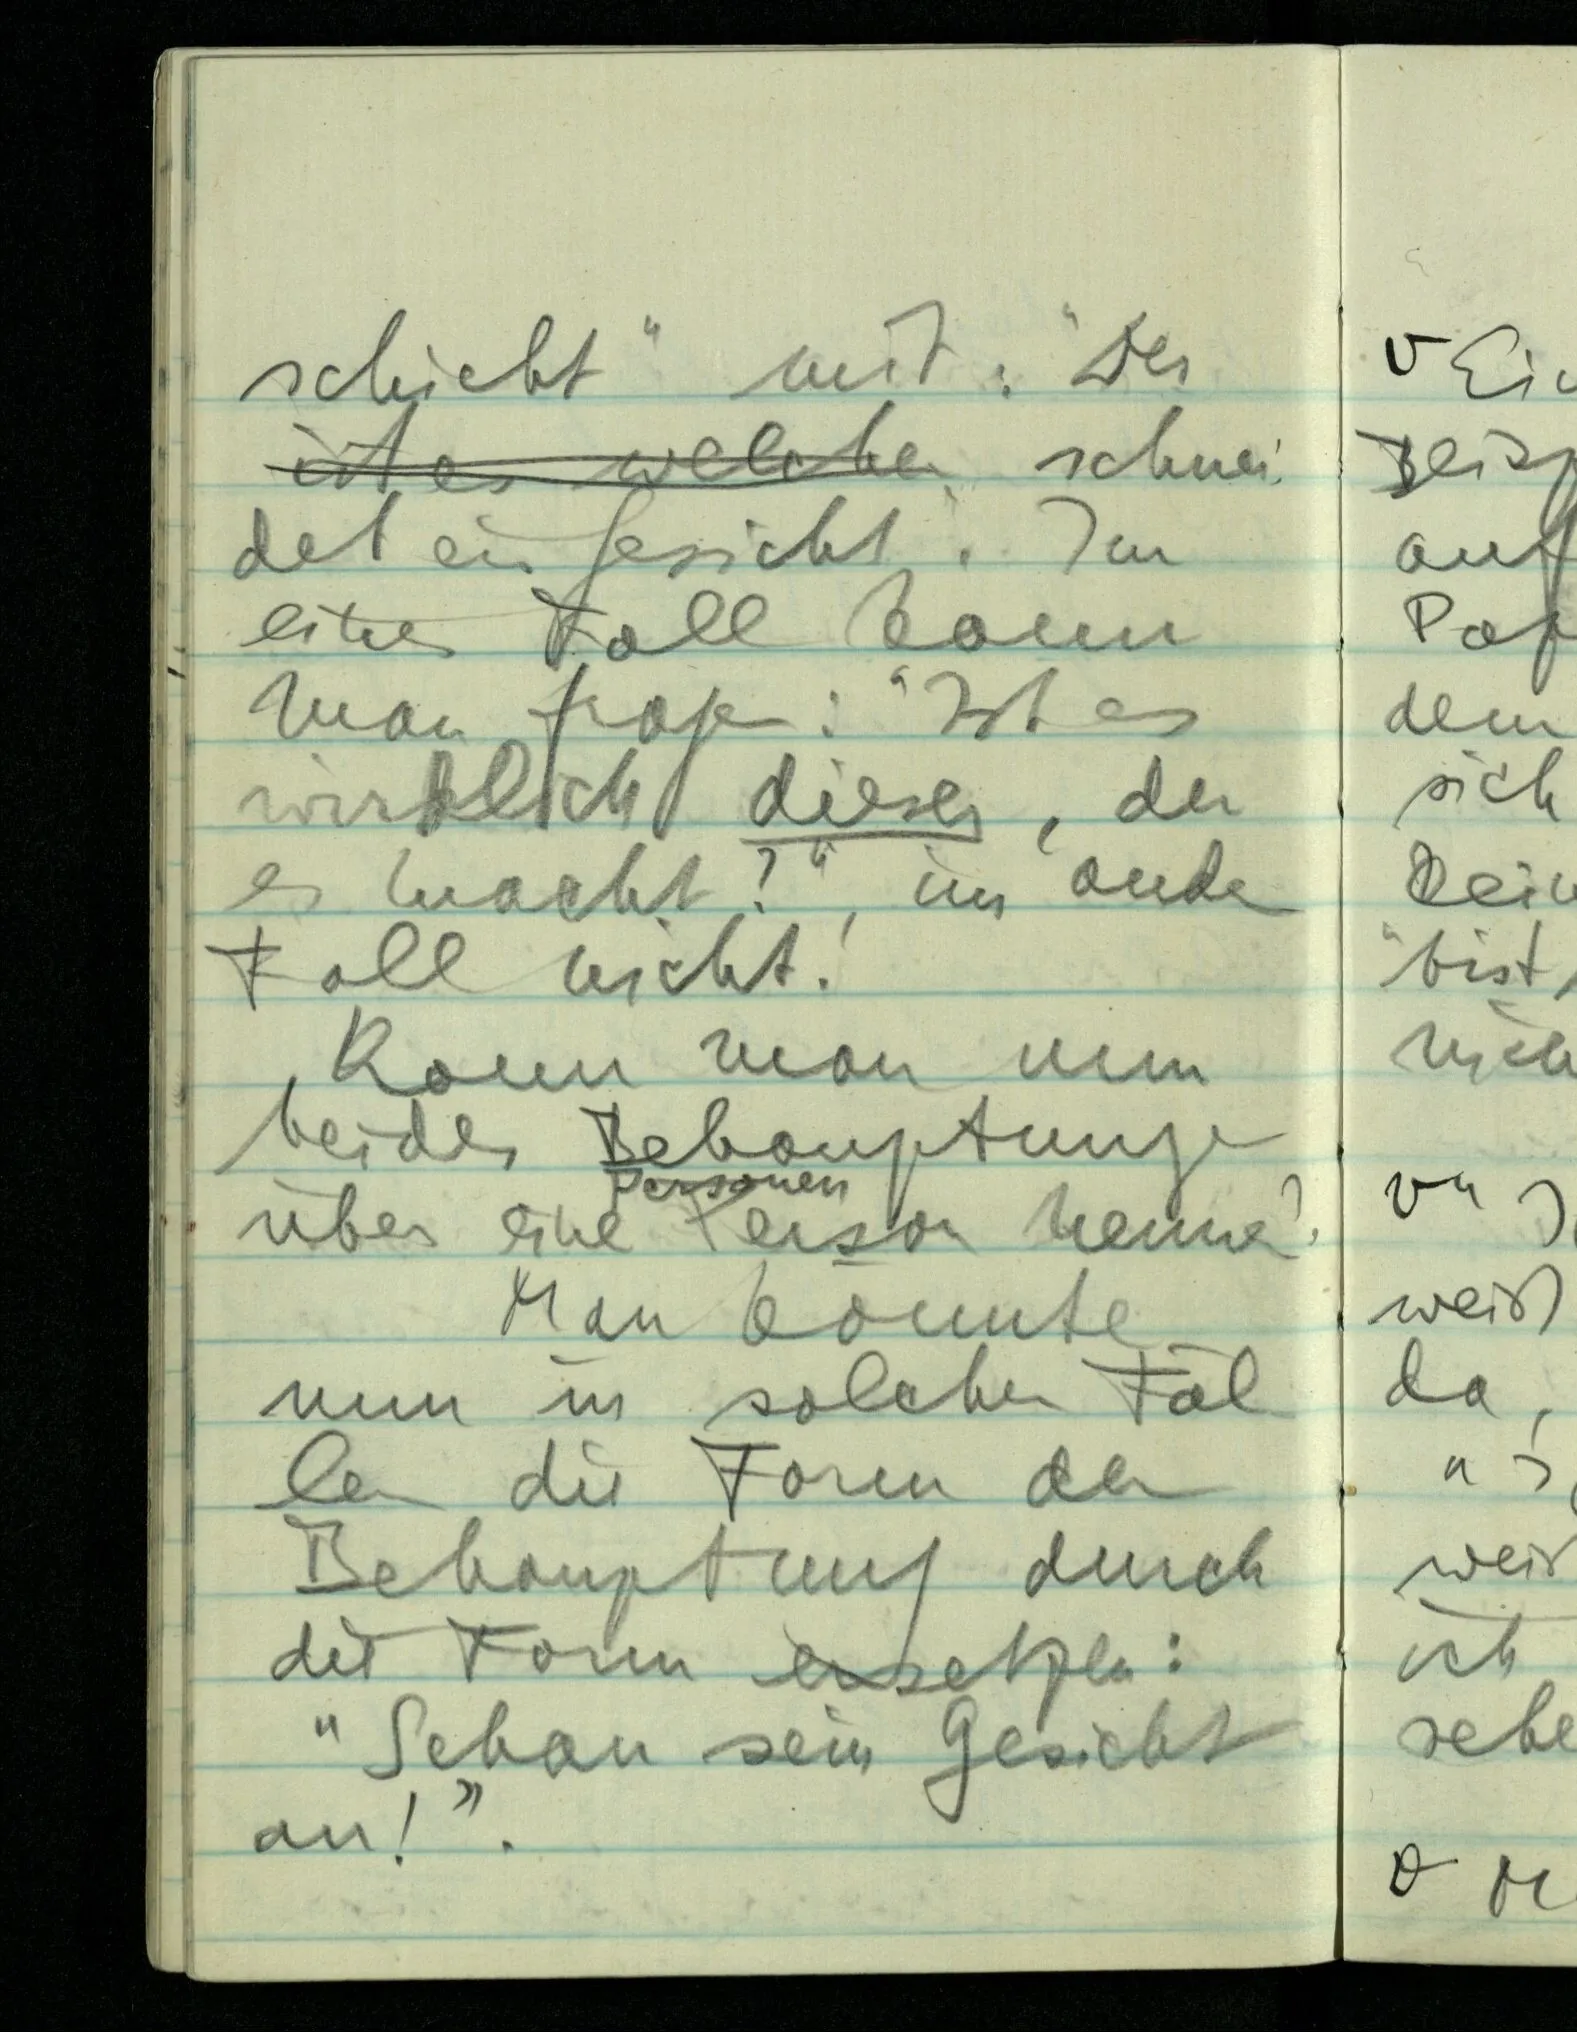 schicht" mit: "Der
ist es welcher schnei-
det ein Gesicht". Im
einen Fall kann
man fragen: "Ist es
wirklich dieser, der
es macht?", im anden
Fall nicht!
Kann man nun
beides Behauptungen
Personen
über eine Person nennen?
Man könnte
nun in solchen Fäl
len die Form der
Behauptung durch
die Form ersetzen:
"Schau sein Gesicht
an!".
v Ein
Beisp
auf
Pap
dem
sich
"bist,
nich
weiß
da,
weiß
ich
sehe